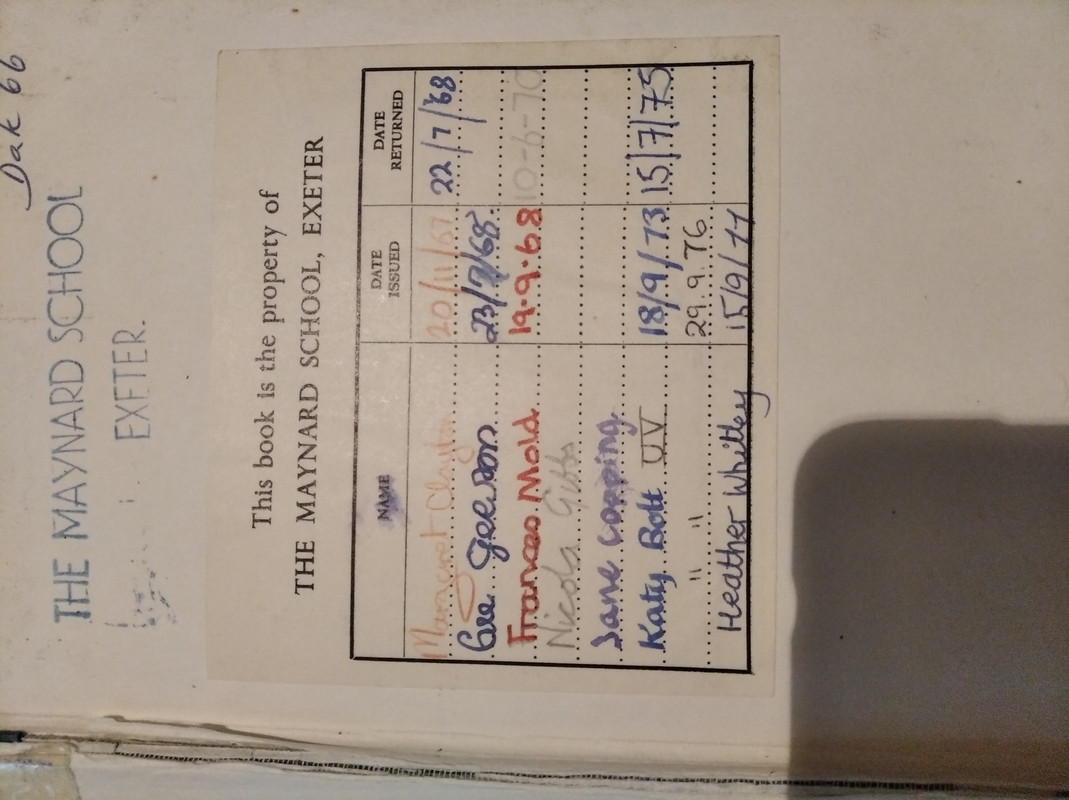 Dak 66
THE MAYNARD SCHOOL
EXETER.
This book is the property of
THE MAYNARD SCHOOL, EXETER
NAME DATE ISSUED DATE RETURNED
Margaret 20/11/67 22/7/68
23/7/68
Frances Mold 19.9.68 10-6-70
Nicola Gibbs
Jane Copping
Katy Bott UV 18/9/73 15/7/75
" " 29.9.76
Heather Whitley 15/9/77